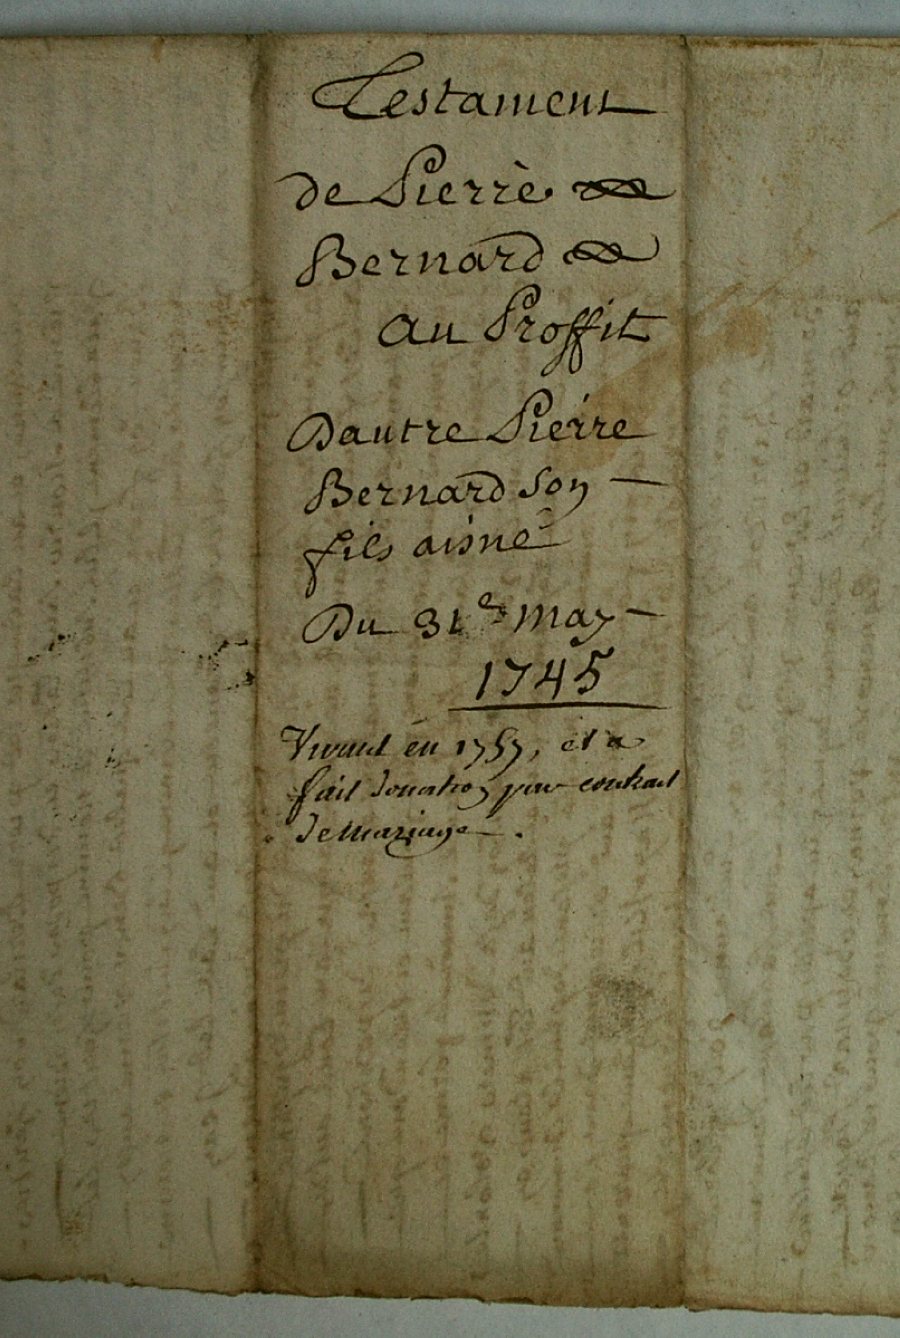 Testament
de Pierre
Bernard
au Proffit
Dautre Pierre
Bernard son
fils aisné
Du 31e may
1745
Vivant en 1757, et a
fait donation par contract
de mariage.